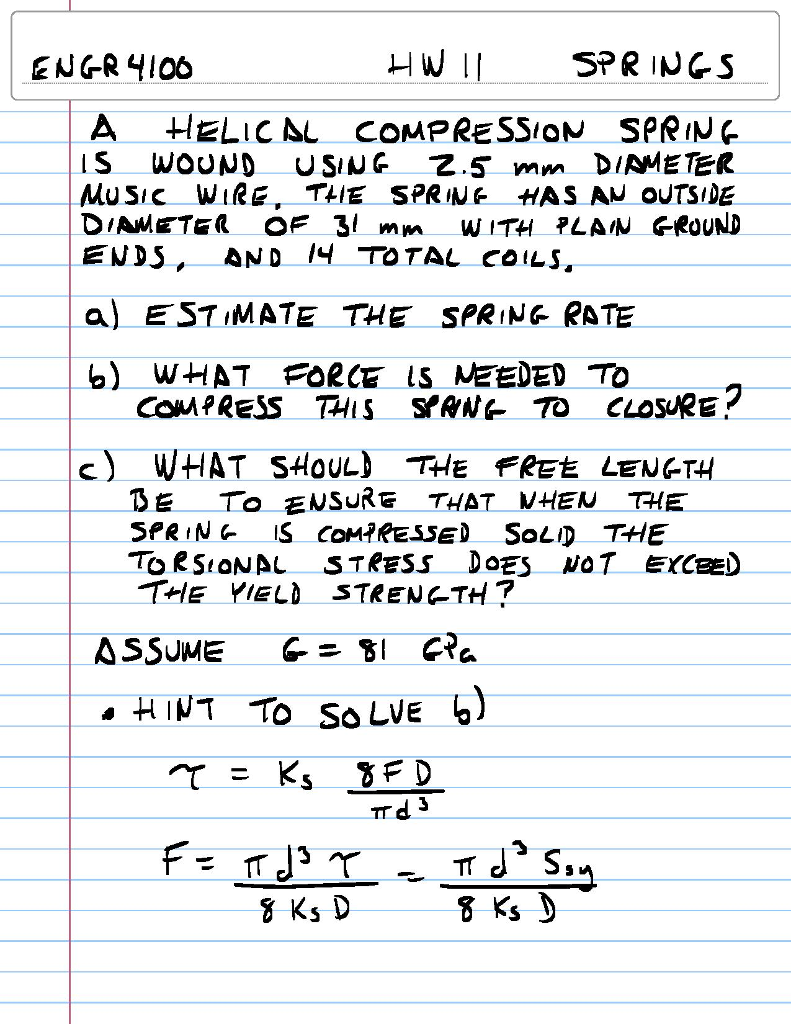 ENGR 4100 HW 11 SPRINGS
A HELICAL COMPRESSION SPRING
IS WOUND USING 2.5 mm DIAMETER
MUSIC WIRE. THE SPRING HAS AN OUTSIDE
DIAMETER OF 31 mm WITH PLAIN GROUND
ENDS, AND 14 TOTAL COILS.
a) ESTIMATE THE SPRING RATE
b) WHAT FORCE IS NEEDED TO
COMPRESS THIS SPRING TO CLOSURE?
c) WHAT SHOULD THE FREE LENGTH
BE TO ENSURE THAT WHEN THE
SPRING IS COMPRESSED SOLID THE
TORSIONAL STRESS DOES NOT EXCEED
THE YIELD STRENGTH?
ASSUME G = 81 GPa
• HINT TO SOLVE b)
τ = Ks 8FD / πd³
F = πd³τ / 8 Ks D = πd³ Ssy / 8 Ks D